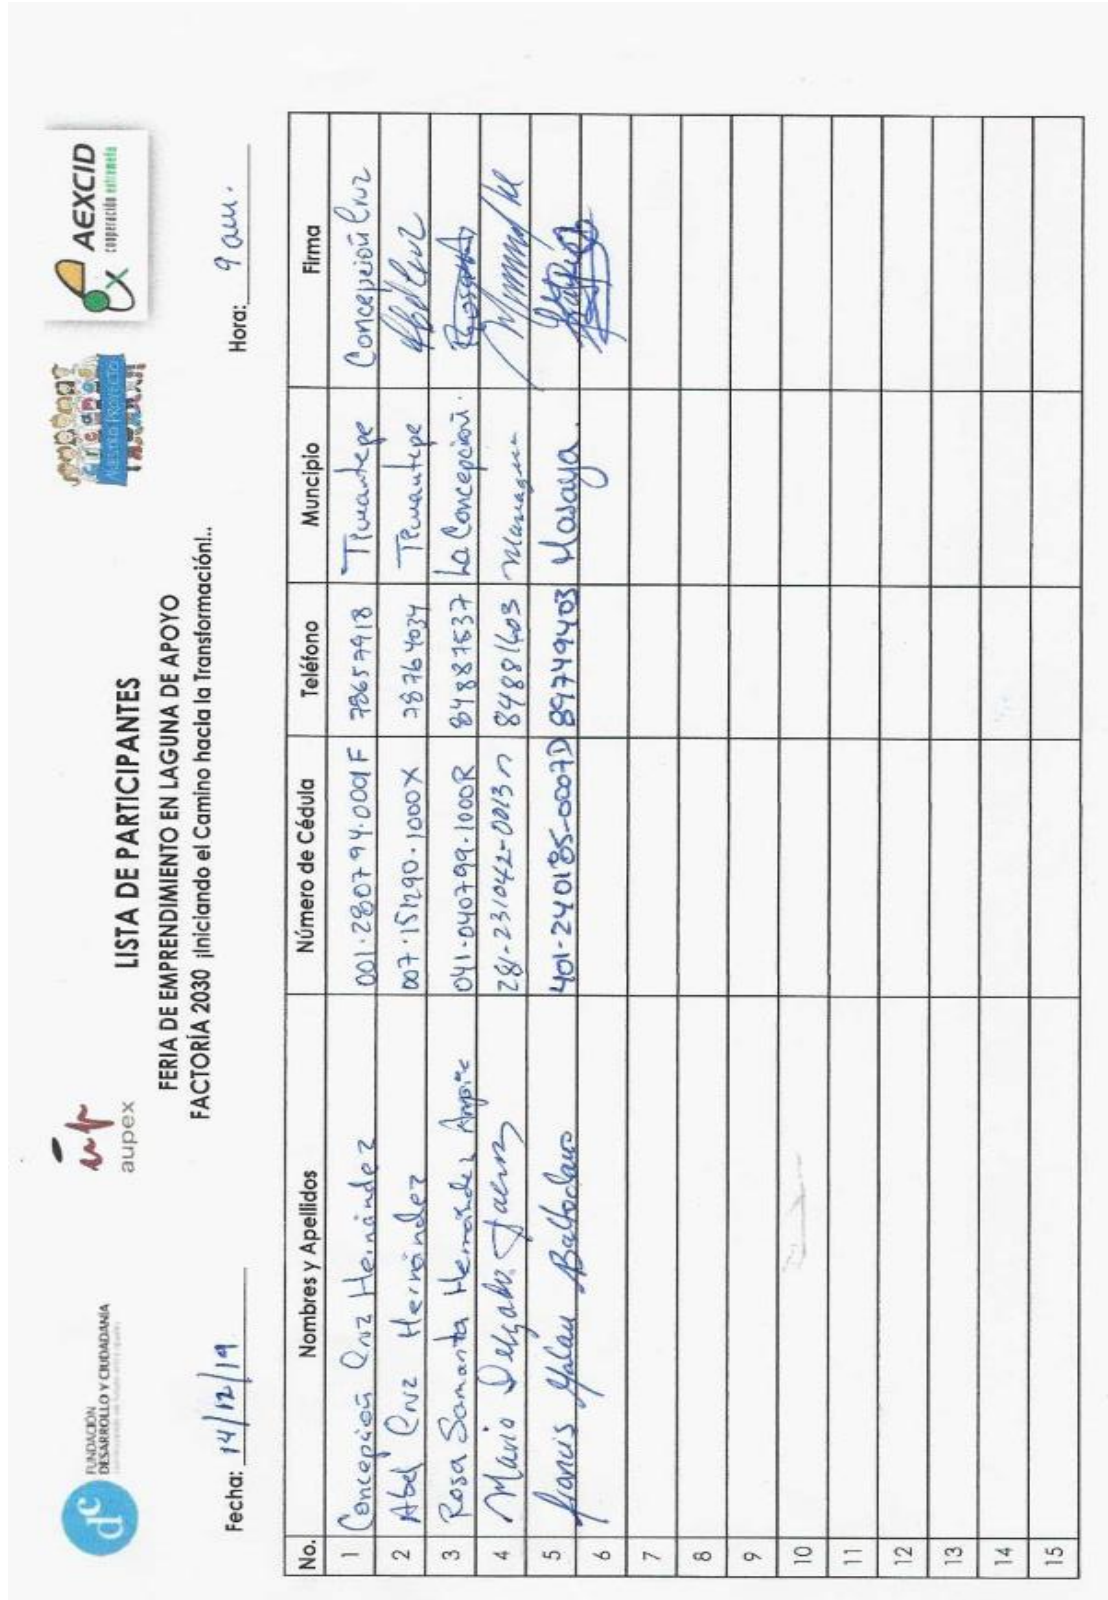 FUNDACIÓN
DESARROLLO Y CIUDADANÍA
aupex
AEXCID
cooperación extremeña
LISTA DE PARTICIPANTES
FERIA DE EMPRENDIMIENTO EN LAGUNA DE APOYO
FACTORÍA 2030 ¡Iniciando el Camino hacia la Transformación!..
Fecha: 14/12/19 Hora: 9 am.
No. Nombres y Apellidos Número de Cédula Teléfono Muncipio Firma
1 Concepción Cruz Hernández 001-280794-0001F 78657918 Ticuantepe Concepción Cruz
2 Abel Cruz Hernández 007-151290-1000X 78764034 Ticuantepe Abel Cruz
3 Rosa Samanta Hernández Ampie 041-040799-1000R 84887537 La Concepción. Rosa
4 Mario Delgado 281-231042-0013 84881603 Managua
5 Francis Galan Baltodano 401-240185-0007D 89749403 Masaya.
6
7
8
9
10
11
12
13
14
15